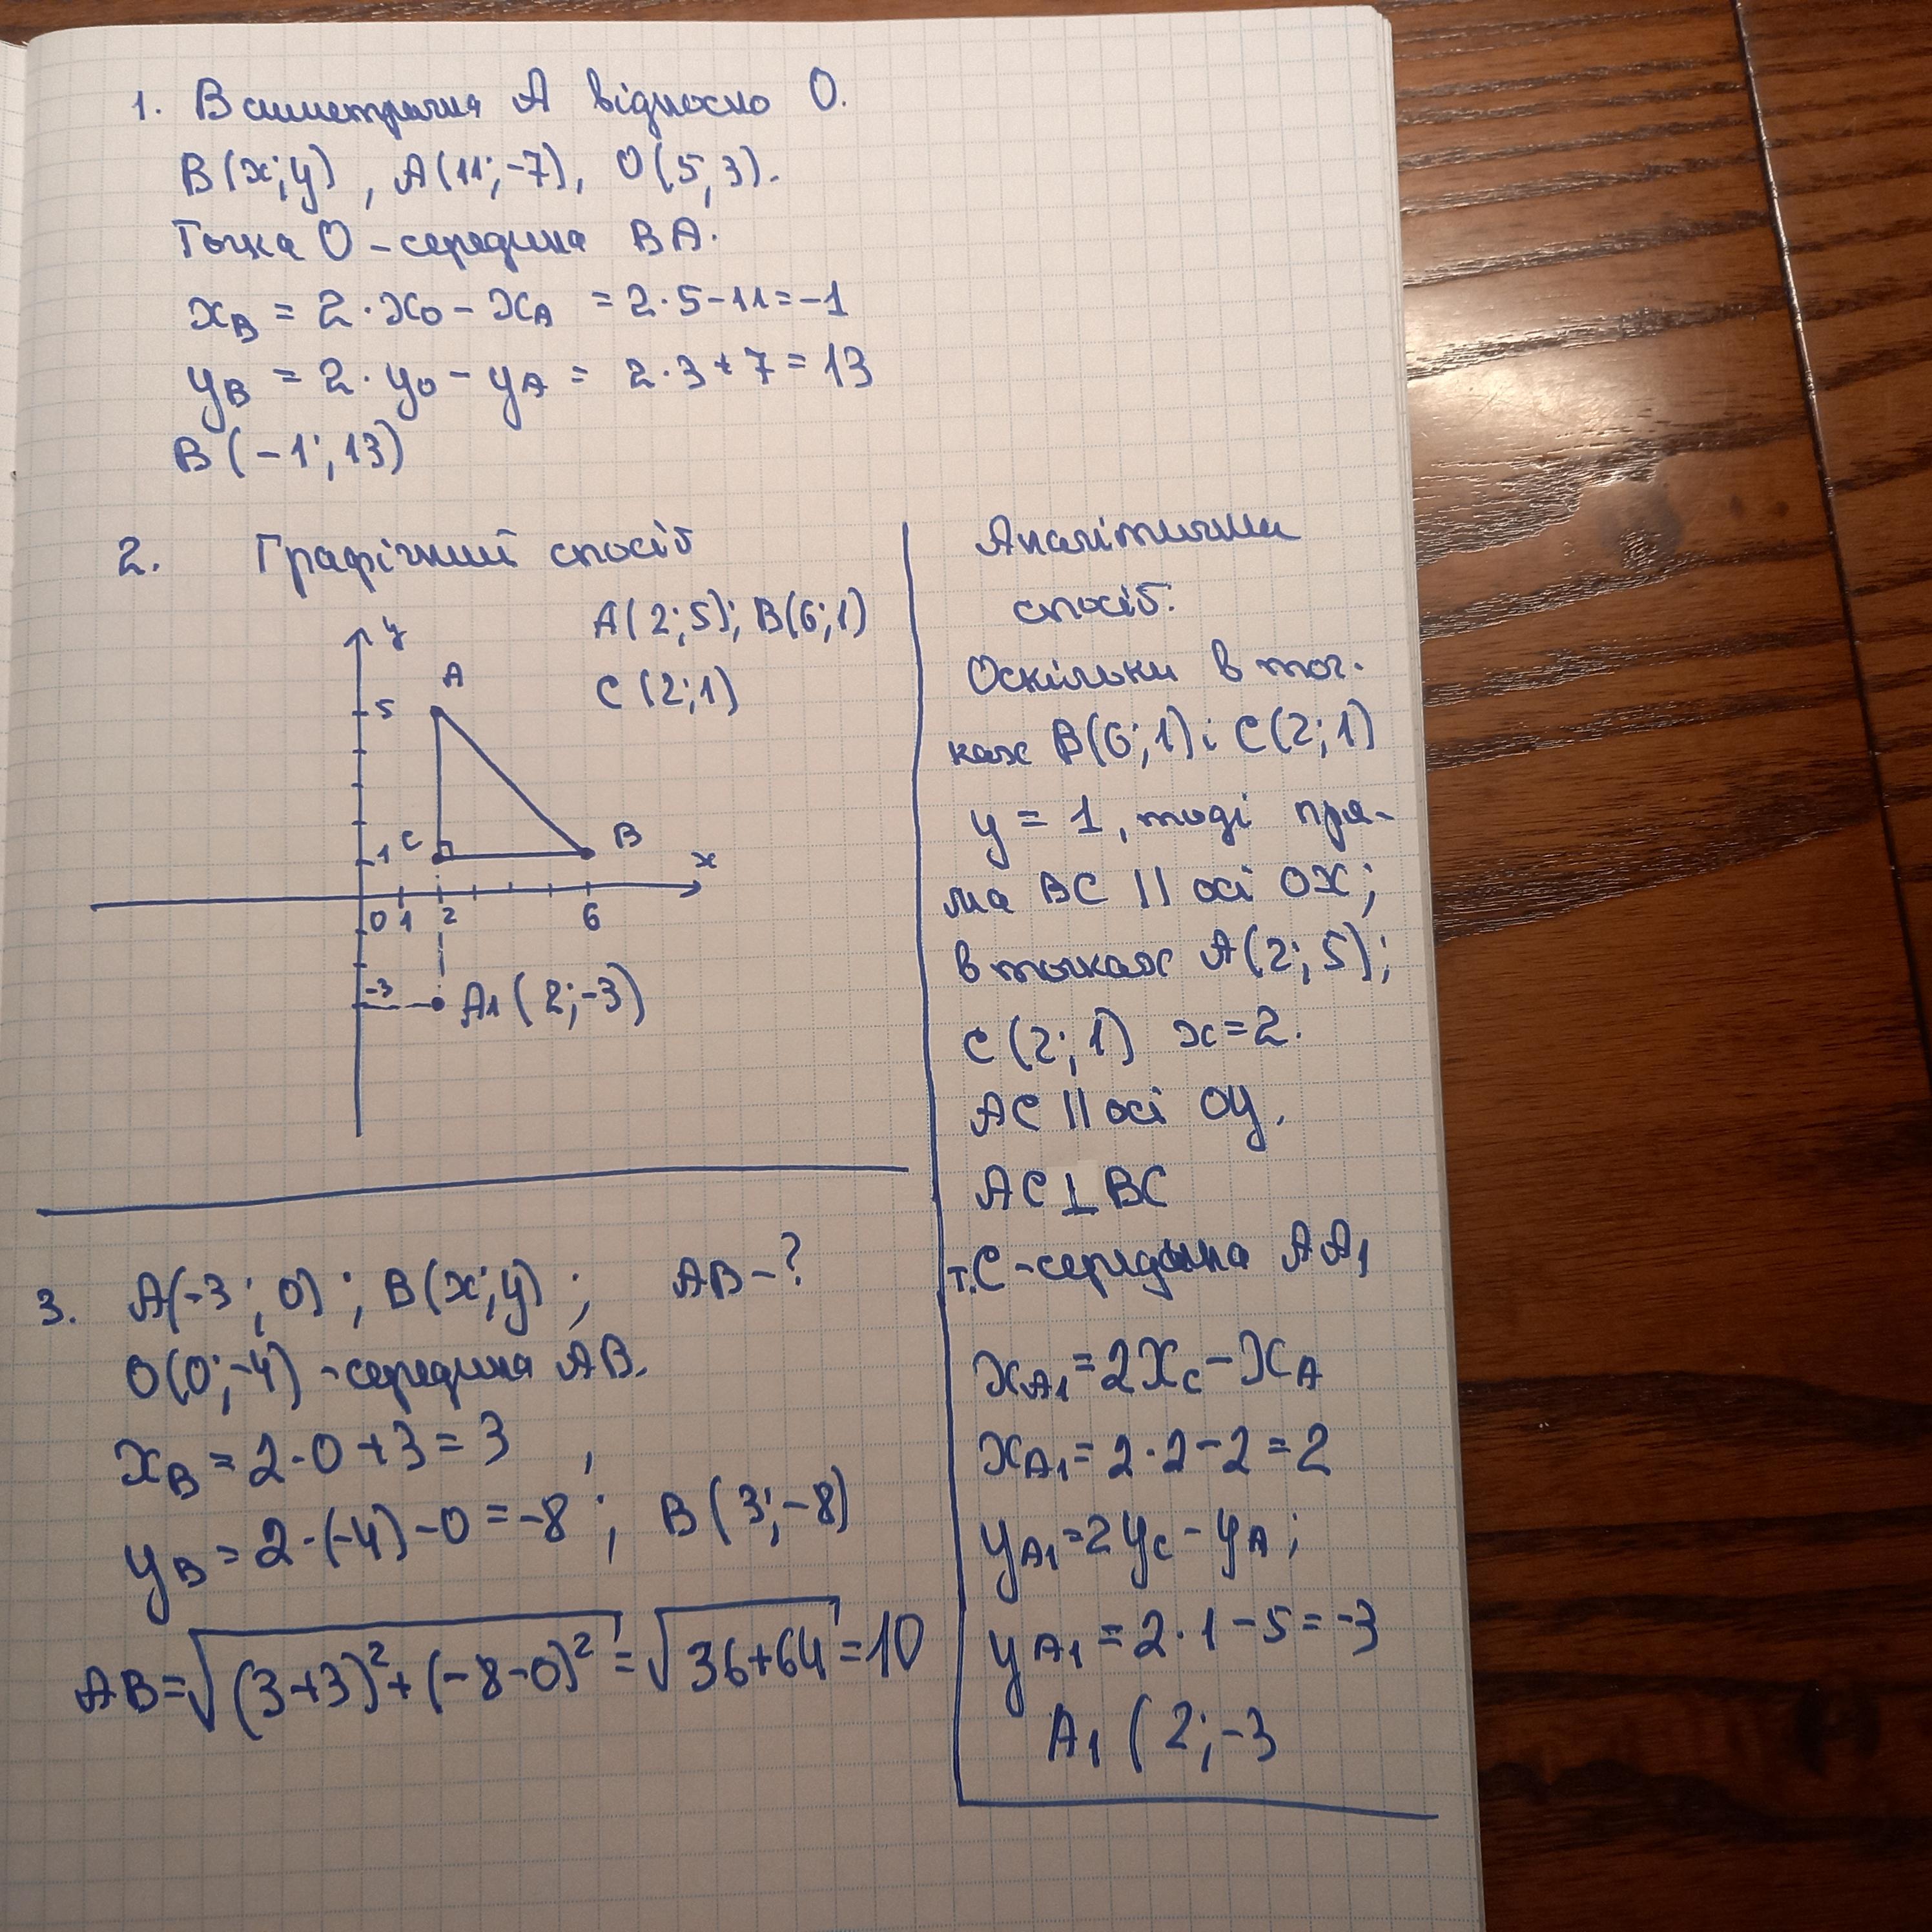 1. В симетрична А відносно О.
В(x;y), А(11;-7), О(5,3).
Точка О - середина ВА.
xB = 2·xO - xA = 2·5-11=-1
yB = 2·yO - yA = 2·3+7=13
В(-1;13)
2. Графічний спосіб
А(2;5); В(6;1)
С(2;1)
y
A
5
1
C
B
x
0 1 2 6
-3
A1(2;-3)
Аналітични
спосіб:
Оскільки в точ-
ках В(6;1) і С(2;1)
y = 1, тоді пря-
ма ВС || осі ОХ;
в точках А(2;5);
С(2;1) x=2.
АС || осі ОУ.
АС⊥ВС
т.С-середина АА1
xA1=2xC-xA
xA1=2·2-2=2
yA1=2yC-yA;
yA1=2·1-5=-3
A1(2;-3
3. А(-3;0); В(x;y); АВ-?
О(0;-4) -середина АВ.
xB=2·0+3=3,
yB=2·(-4)-0=-8; В(3;-8)
АВ=√(3+3)²+(-8-0)²=√36+64=10